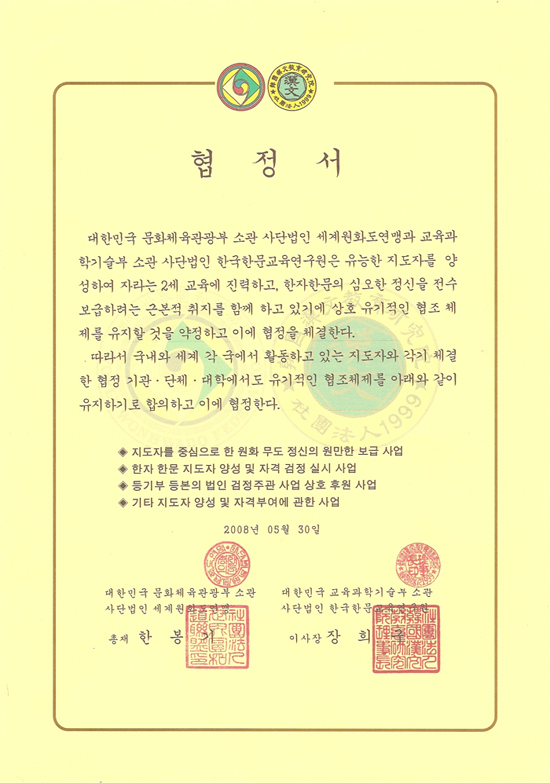 漢文
社團法人1999
협 정 서
대한민국 문화체육관광부 소관 사단법인 세계원화도연맹과 교육과
학기술부 소관 사단법인 한국한문교육연구원은 유능한 지도자를 양
성하여 자라는 2세 교육에 진력하고, 한자한문의 심오한 정신을 전수
보급하려는 근본적 취지를 함께 하고 있기에 상호 유기적인 협조 체
제를 유지할 것을 약정하고 이에 협정을 체결한다.
따라서 국내와 세계 각 국에서 활동하고 있는 지도자와 각기 체결
한 협정 기관·단체·대학에서도 유기적인 협조체제를 아래와 같이
유지하기로 합의하고 이에 협정한다.
社團法人1999
◈ 지도자를 중심으로 한 원화 무도 정신의 원만한 보급 사업
◈ 한자 한문 지도자 양성 및 자격 검정 실시 사업
◈ 등기부 등본의 법인 검정주관 사업 상호 후원 사업
◈ 기타 지도자 양성 및 자격부여에 관한 사업
2008년 05월 30일
대한민국 문화체육관광부 소관
사단법인 세계원화도연맹
총재 한 봉 기
대한민국 교육과학기술부 소관
사단법인 한국한문교육연구원
이사장 장 희